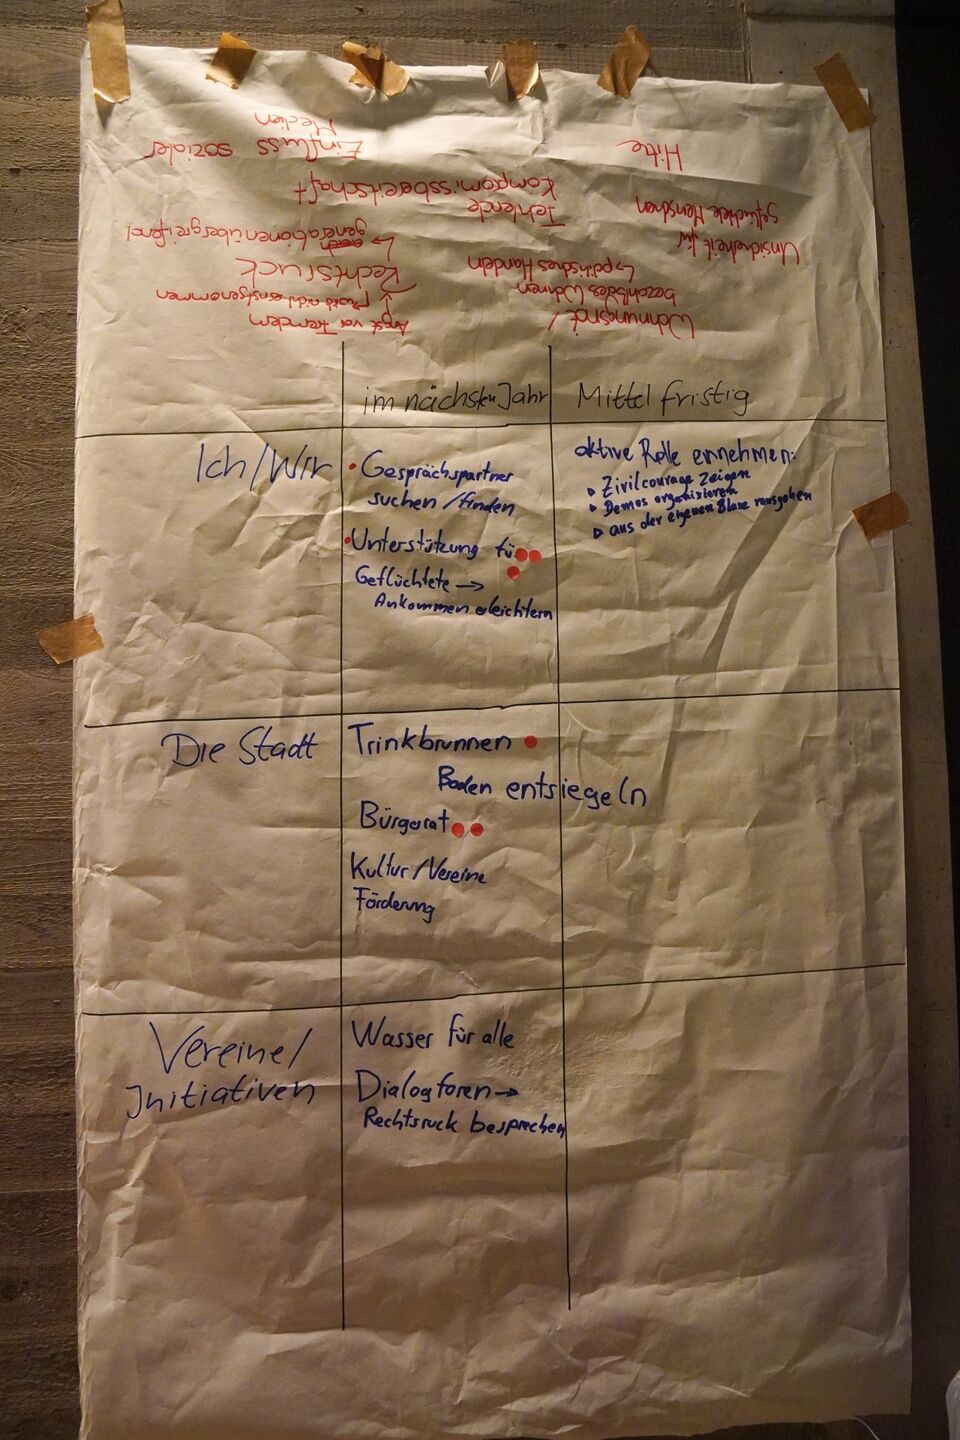 Wohnungsnot /
bezahlbares Wohnen
↳ politisches Handeln
Unsicherheit für
geflüchtete Menschen
Fehlende
Kompromissbereitschaft
Hitze
Angst vor Fremdem
↳ nicht ernstgenommen
Rechtsruck
↳ generationenübergreifend
Einfluss sozialer
Medien
im nächsten Jahr
Mittelfristig
Ich/Wir
• Gesprächspartner
suchen/finden
• Unterstützung für
Geflüchtete →
Ankommen erleichtern
aktive Rolle einnehmen:
▹ Zivilcourage Zeigen
▹ Demos organisieren
▹ aus der eigenen Blase rausgehen
Die Stadt
Trinkbrunnen
Boden entsiegeln
Bürgerrat
Kultur/Vereine
Förderung
Vereine/
Initiativen
Wasser für alle
Dialogforen →
Rechtsruck besprechen